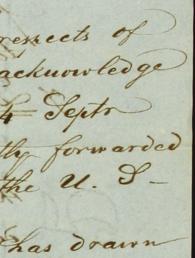 respects of
acknowledge
4 Septr
tly forwarded
the U. S -
has drawn